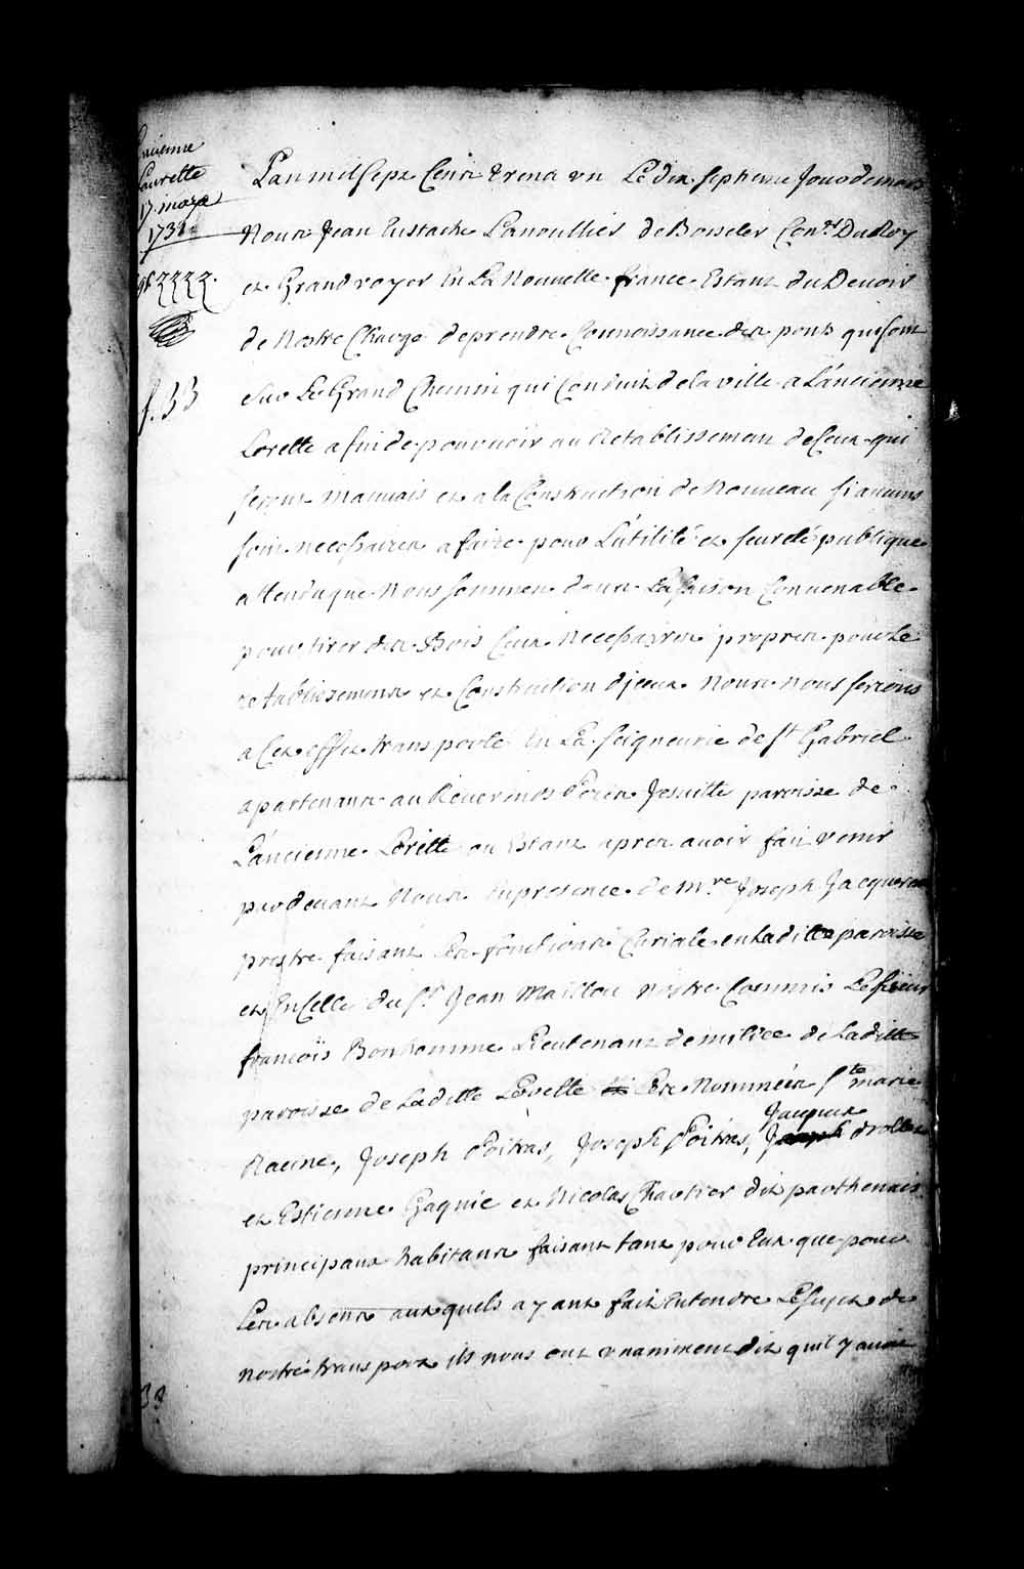 Ancienne
Laurette
17. mars
1731
f. 33
L'an mil sept Cent trente un Le dix septieme Jour de mars
Nous Jean Eustache Lanoullier de Boisclerc Con.er Du Roy
et Grand voyer En La Nouvelle france Estant du Devoir
de Nostre Charge de prendre Connoissance des ponts qui sont
sur Le Grand Chemin qui Conduit de la ville a L'ancienne
Lorette afin de pourvoir au Retablissement de Ceux qui
seront mauvais et a la Construction de Nouveau si aucuns
sont necessaires a faire pour L'utilité et seureté publique
attendu que Nous sommes dans La saison Convenable
pour tirer des Bois Ceux Necessaires propres pour Le
retablissement et Construction d'jceux Nous Nous serions
a Cet effet transporté En La seigneurie de St Gabriel
apartenant au Reverends Peres Jesuitte paroisse de
L'ancienne Lorette ou Estant apres avoir fait venir
par devant Nous En presence de Mre Joseph
prestre faisant Les fonctions Curiale en Laditte paroisse
et En Celle du Sr. Jean Maillou nostre Commis Le sieur
françois Bonhomme Lieutenant de milice de Laditte
paroisse de Laditte Lorette Les Nommés Ste marie
Racine, Joseph Poitras, Joseph Poitras, Jacques drollet
et Estienne Gagnié et Nicolas Chartier dit parthenais
principaux habitans faisant tant pour Eux que pour
Les absents auxquels ayant fait Entendre Le sujet de
nostre transport ils nous ont unanimement dit quil y avoit